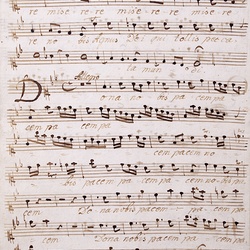 re mise re re mise re re mise re
re no bis Agnus Dei qui tollis pecca
ta mun di
Allegro
Do na no bis pa cem pa
cem pa cem pa
cem pa cem no
bis pacem pa cem pa cem no bis pa
cem Do na nobis pacem pa cem pa
cem Dona nobis pacem pa cem